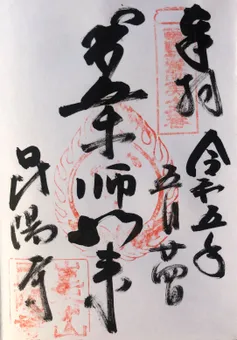 奉拝
令和五年
五月廿四日
薬師如来
昆陽寺